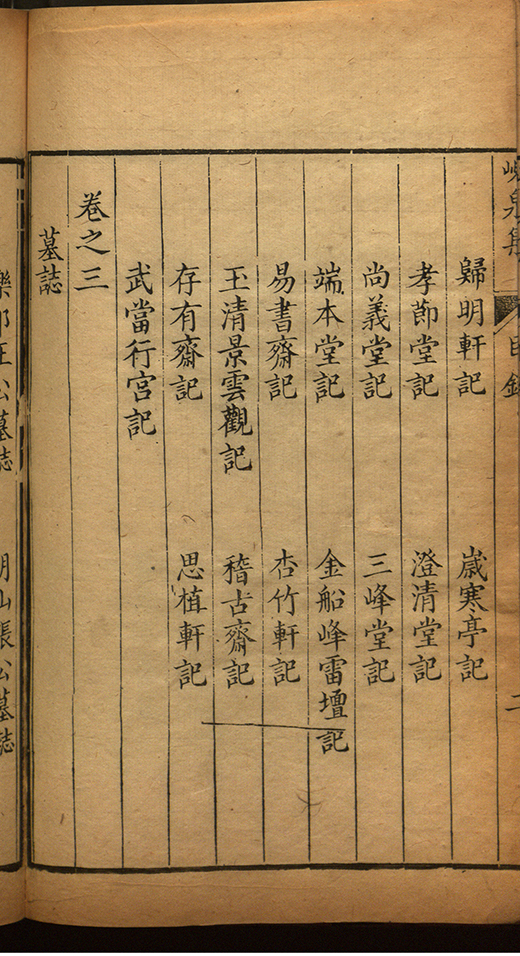 峴泉集 目錄 二
歸明軒記 嵗寒亭記
孝節堂記 澄清堂記
尚義堂記 三峰堂記
端本堂記 金船峰雷壇記
易書齋記 杏竹軒記
玉清景雲觀記 稽古齋記
存有齋記 思植軒記
武當行宮記
卷之三
墓誌
王公墓誌 張公墓誌